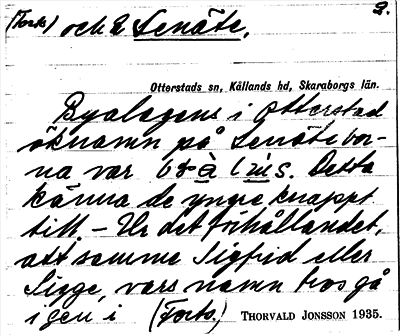 2.
(Forts.) och 2 Lenäte.
Otterstads sn, Kållands hd, Skaraborgs län.
Byalagens i Otterstad
öknamn på Lenätebor-
na var
Detta
känna de yngre knappt
till. – Ur det förhållandet,
att samme Sigfrid eller
Sigge, vars namn tros gå
igen i (Forts.) THORVALD JONSSON 1935.